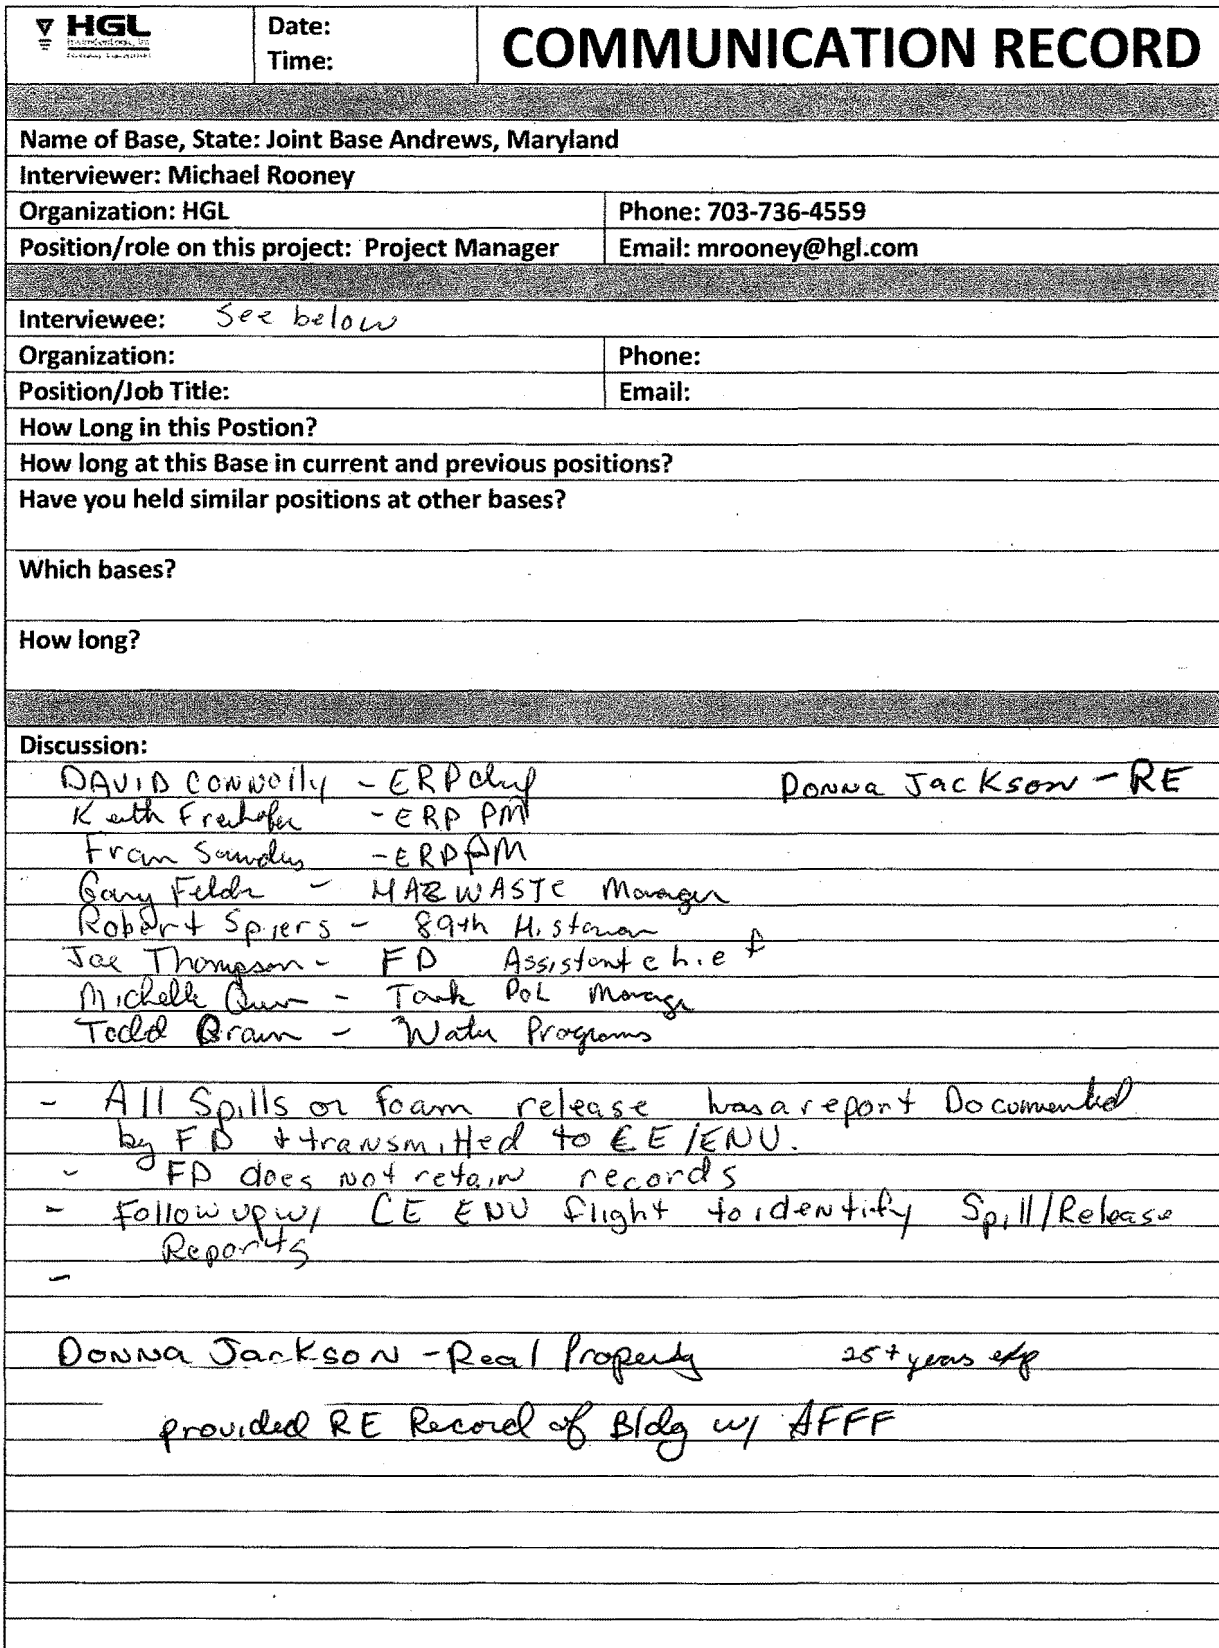 HGL
Date:
Time:
COMMUNICATION RECORD
Name of Base, State: Joint Base Andrews, Maryland
Interviewer: Michael Rooney
Organization: HGL
Phone: 703-736-4559
Position/role on this project: Project Manager
Email: mrooney@hgl.com
Interviewee: See below
Organization:
Phone:
Position/Job Title:
Email:
How Long in this Postion?
How long at this Base in current and previous positions?
Have you held similar positions at other bases?
Which bases?
How long?
Discussion:
DAVID CONNOlly - ERP chief
Donna Jackson - RE
Keith - ERP PM
Fran - ERP PM
Gary - HAZ WASTE Manager
Robert Spiers - 89th Historian
Joe Thompson - FD Assistant chief
Michelle - Tank POL Manager
Todd - Water Programs
- All Spills or foam release has a report Documented
by FD + transmitted to CE/ENV.
- FD does not retain records
- Follow up w/ CE ENV flight to identify Spill/Release
Reports
-
Donna Jackson - Real Property 25+ years exp
provided RE Record of Bldg w/ AFFF